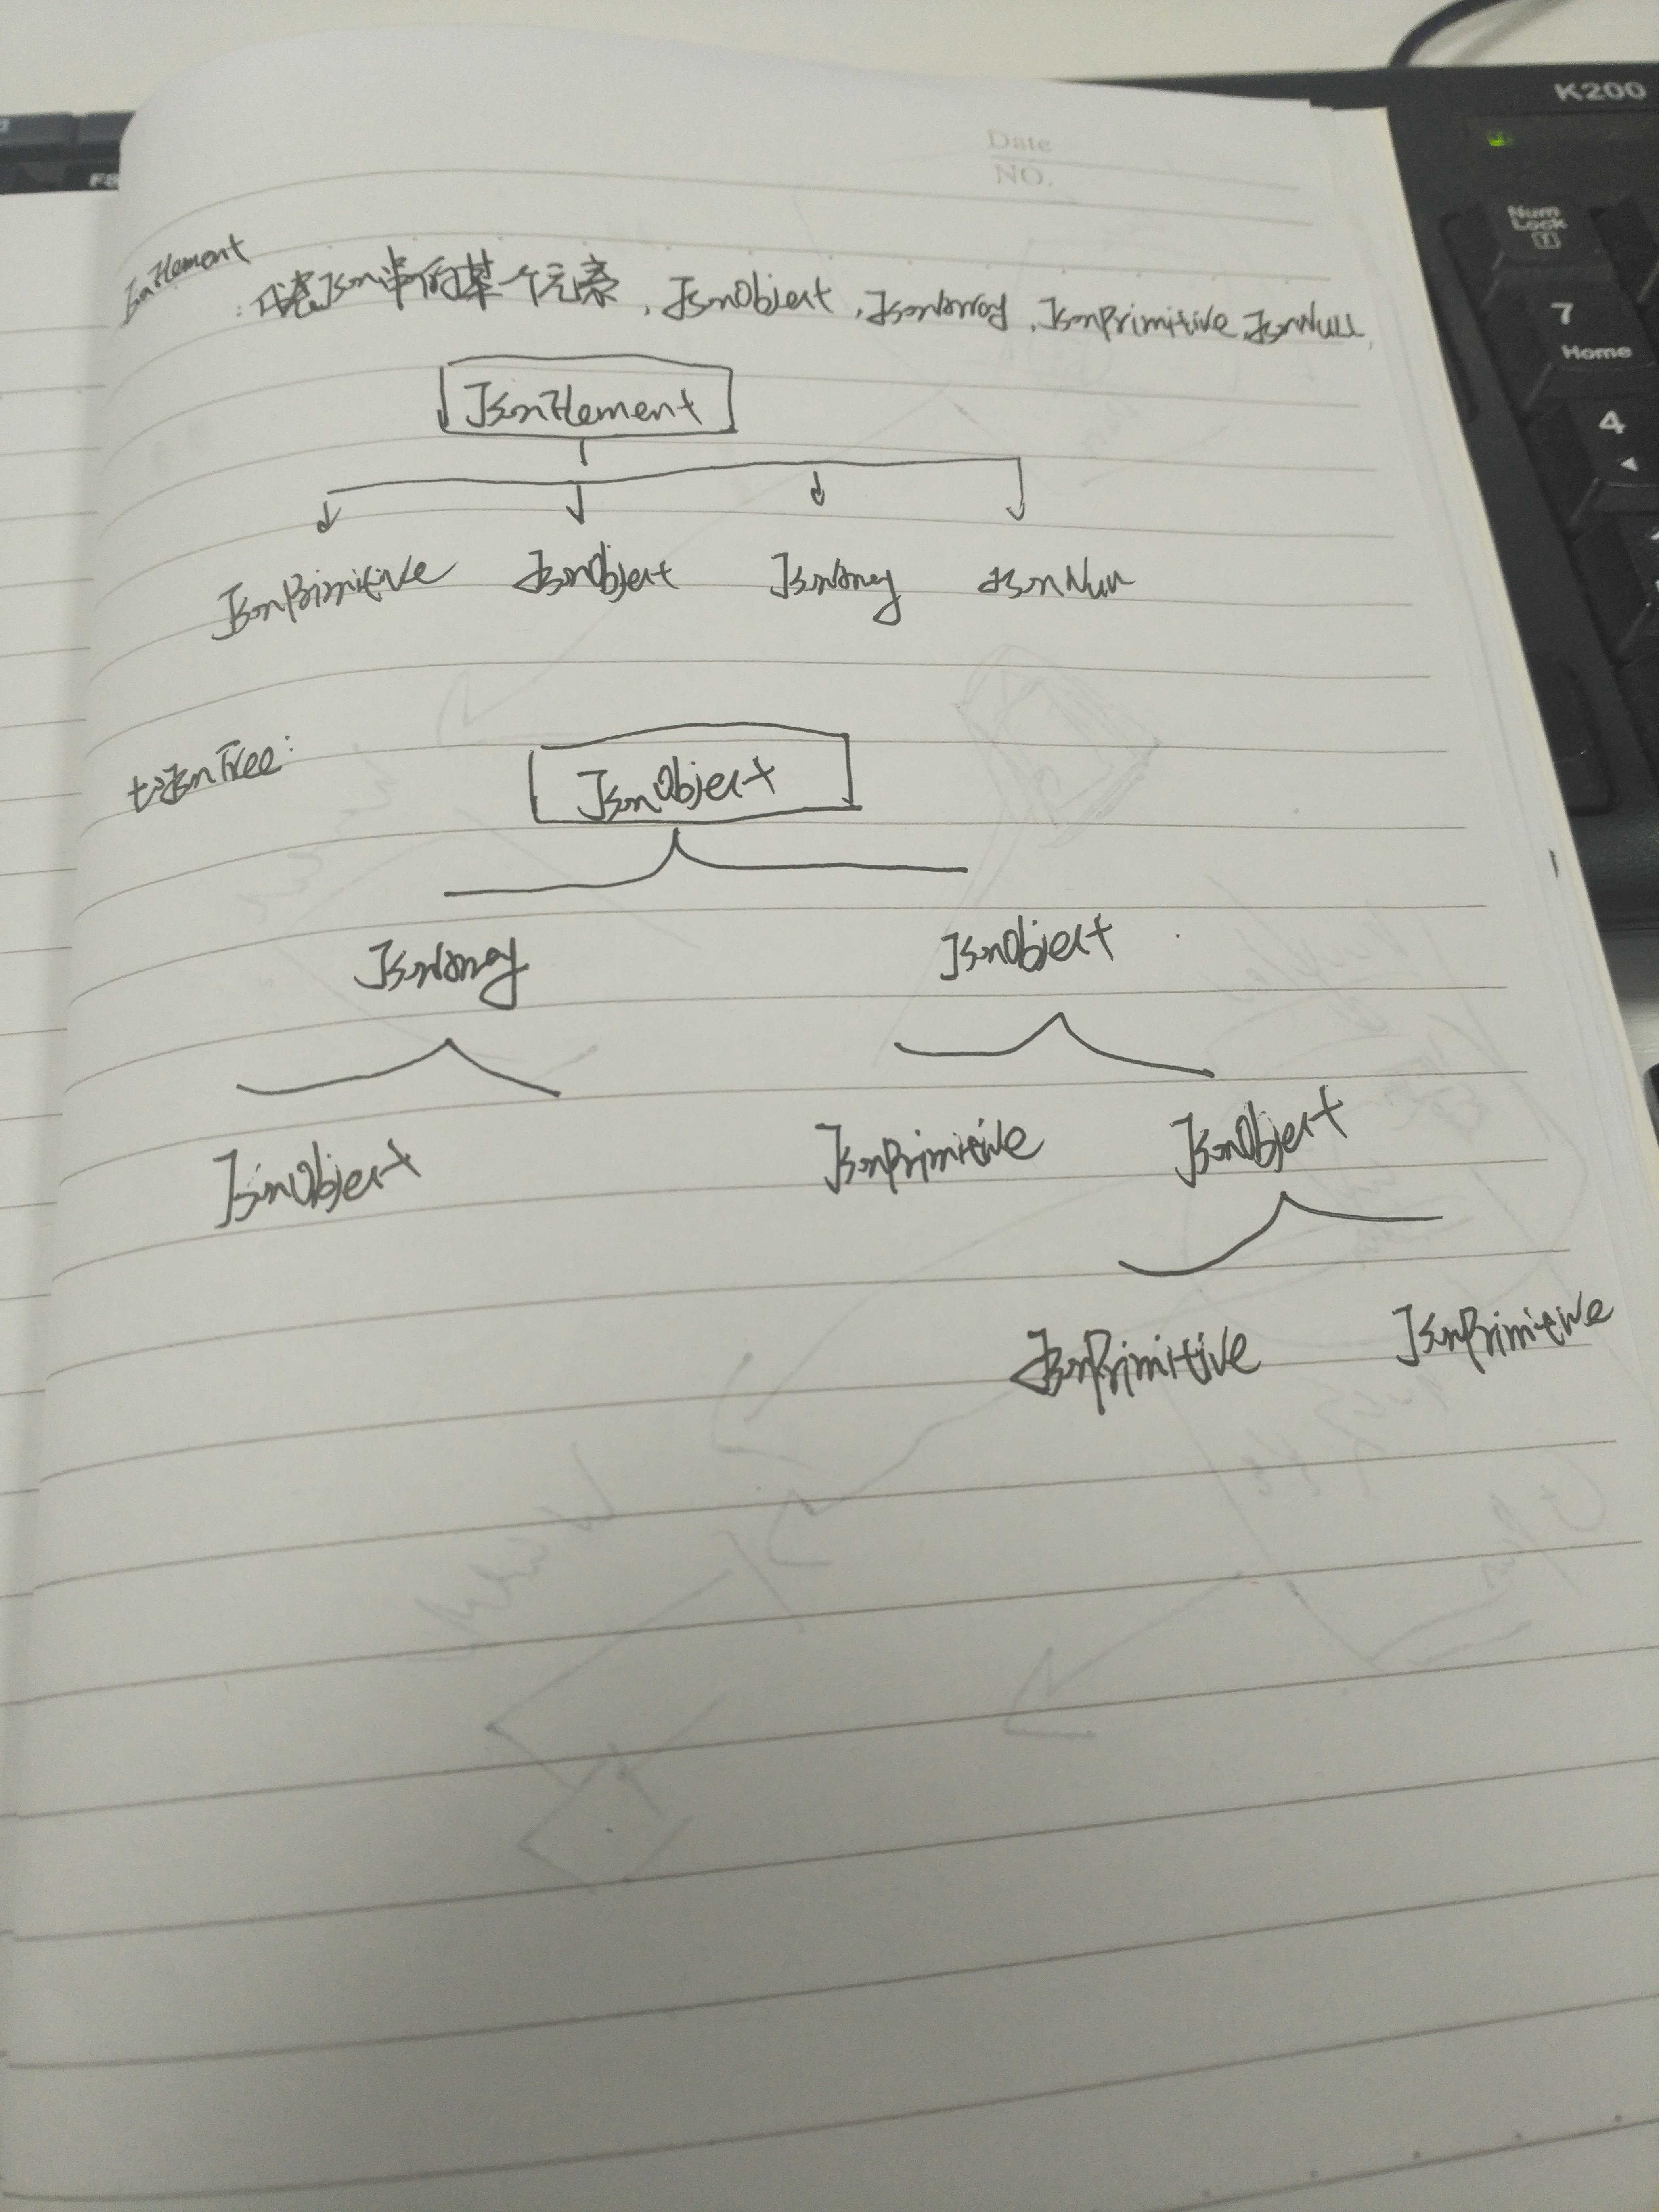 K200
F8
Date
NO.
Num
Lock
7
Home
4
JsonElement
:代表Json串的某个元素,JsonObject,JsonArray,JsonPrimitive,JsonNull,
JsonElement
JsonPrimitive JsonObject JsonArray JsonNull
toJsonTree:
JsonObject
JsonArray JsonObject
JsonObject JsonPrimitive JsonObject
JsonPrimitive JsonPrimitive